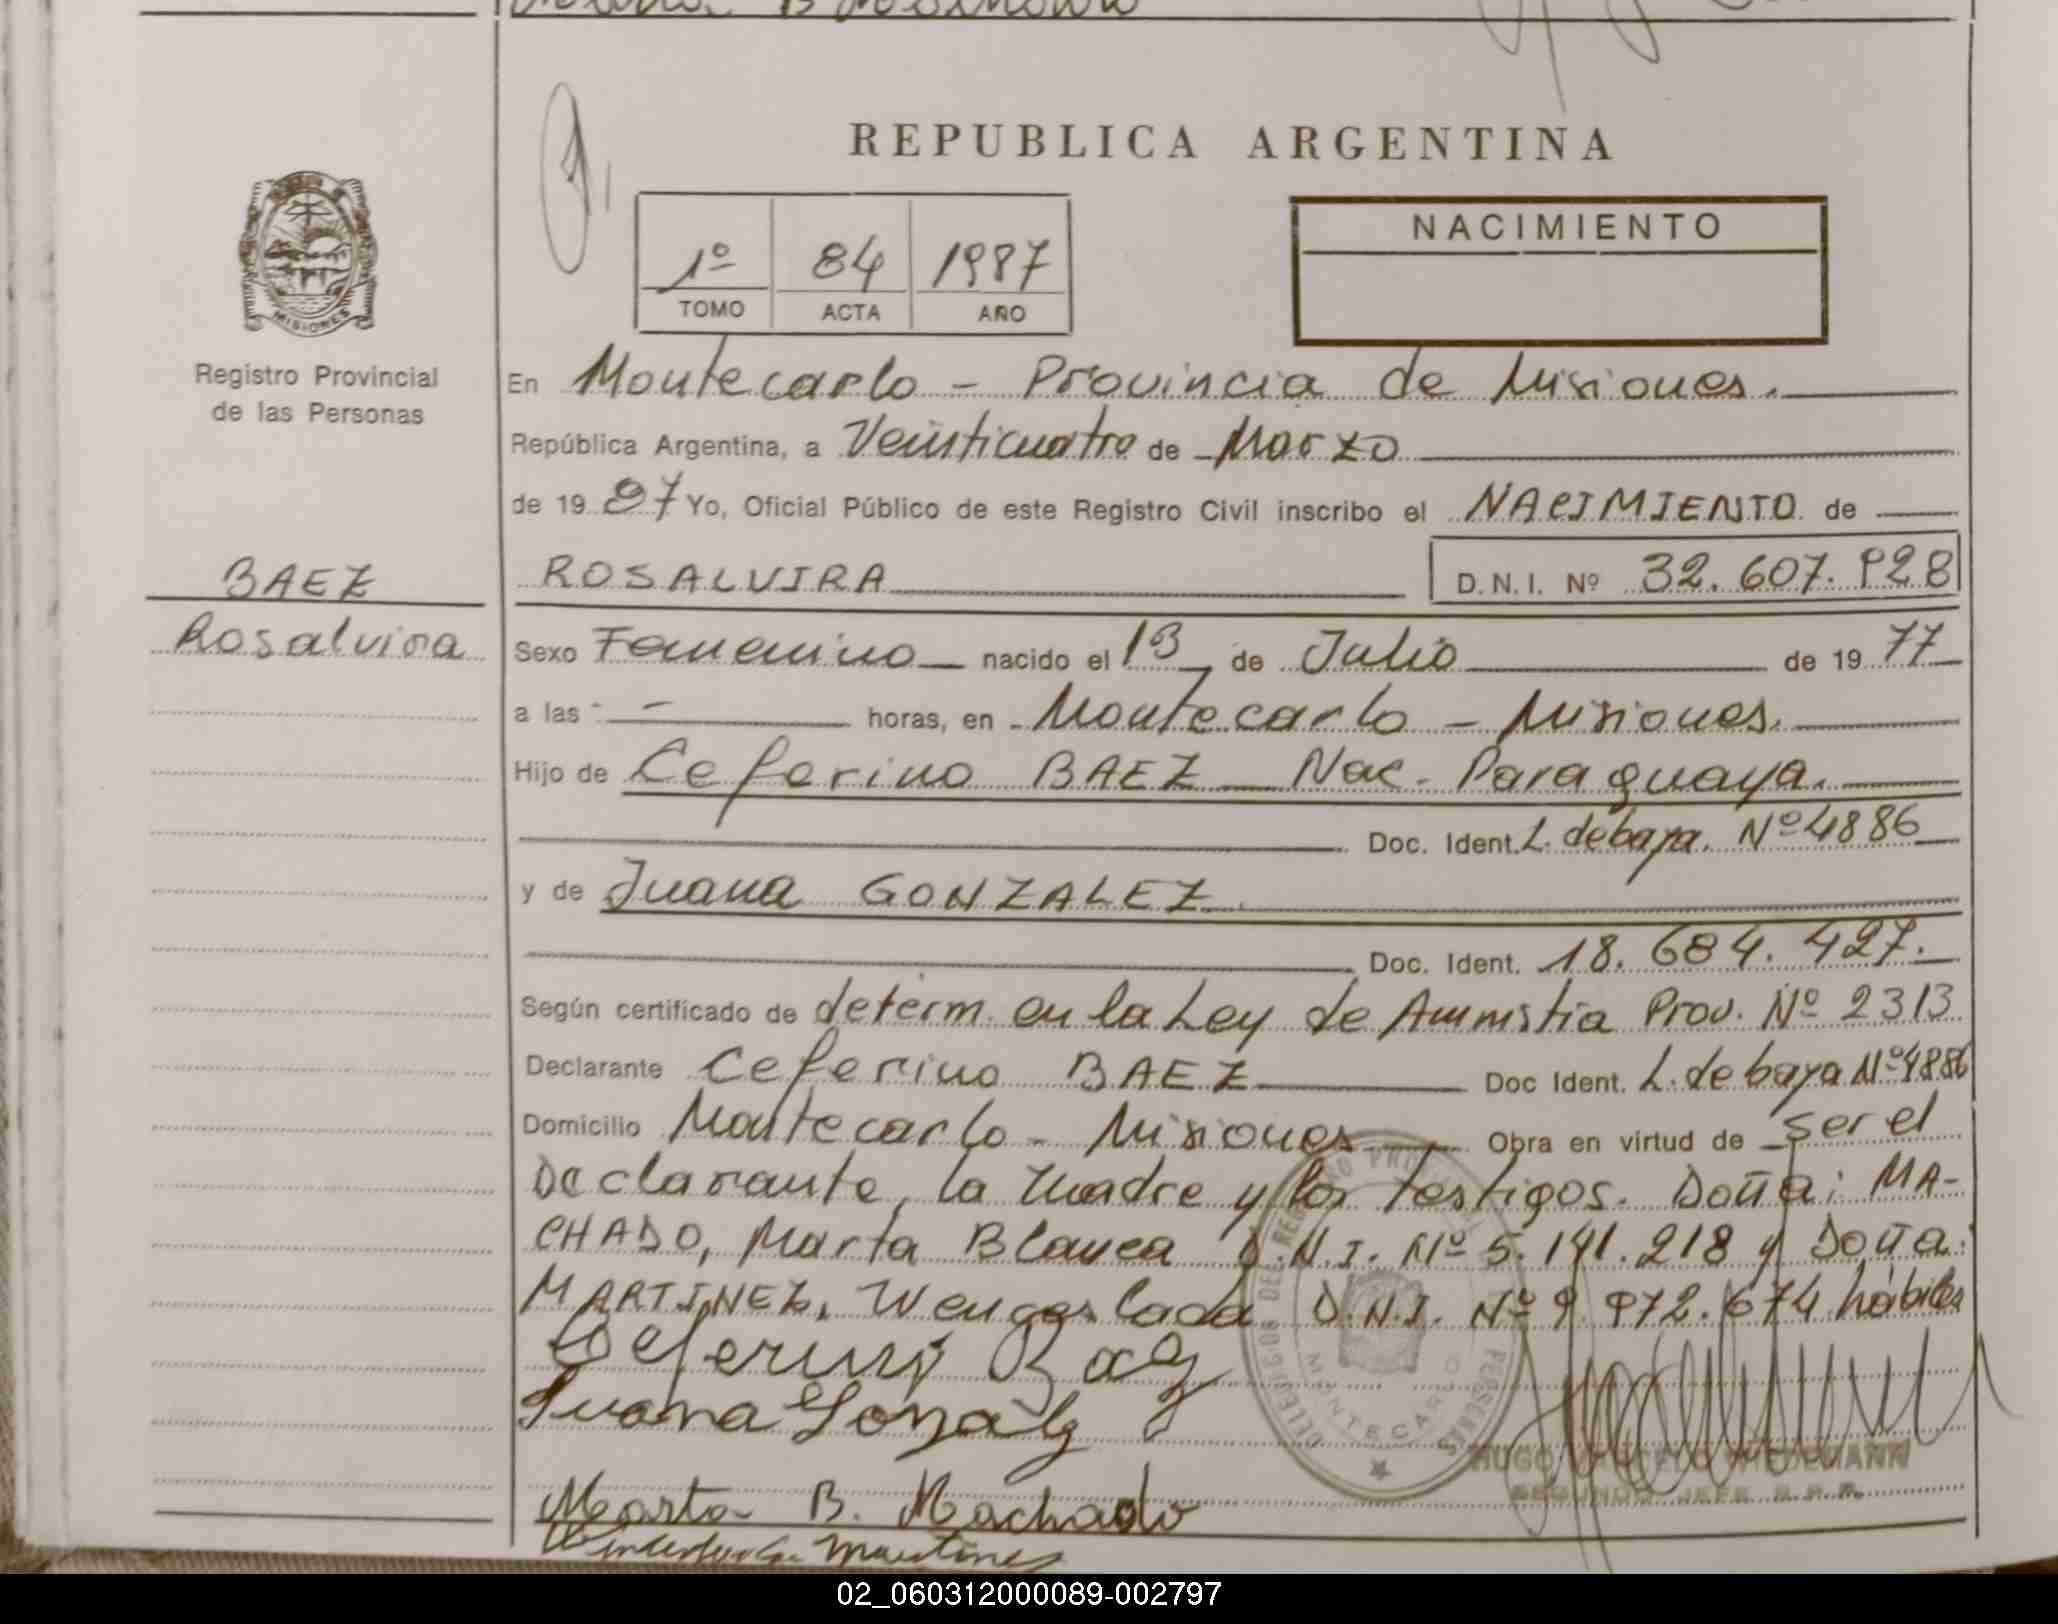 REPUBLICA ARGENTINA
1º 84 1987
TOMO ACTA AÑO
NACIMIENTO
MISIONES
Registro Provincial
de las Personas
BAEZ
Rosalvira
En Montecarlo - Provincia de Misiones.
República Argentina, a Veinticuatro de Marzo
de 19 87 Yo, Oficial Público de este Registro Civil inscribo el NACIMIENTO de
ROSALVIRA D.N.I. Nº 32.607.928
Sexo Femenino nacido el 13 de Julio de 19 77
a las - horas, en Montecarlo - Misiones.
Hijo de Ceferino BAEZ Nac. Paraguaya.
Doc. Ident. L. de baja. Nº 4886
y de Juana GONZALEZ
Doc. Ident. 18.684.427.
Según certificado de determ. en la Ley de Amnistia Prov. Nº 2313
Declarante Ceferino BAEZ Doc Ident. L. de baja Nº 4886
Domicilio Montecarlo - Misiones Obra en virtud de ser el
Declarante, la Madre y los testigos. Doña: MA-
CHADO, Marta Blanca D.N.I. Nº 5.141.218 y Doña:
MARTINEZ, Wenceslada D.N.I. Nº 9.972.674 hábiles
Ceferino Baez
Juana Gonzalez
Marta B. Machado
Martinez
MONTECARLO
HUGO
SEGUNDO JEFE R.P.P.
02_060312000089-002797